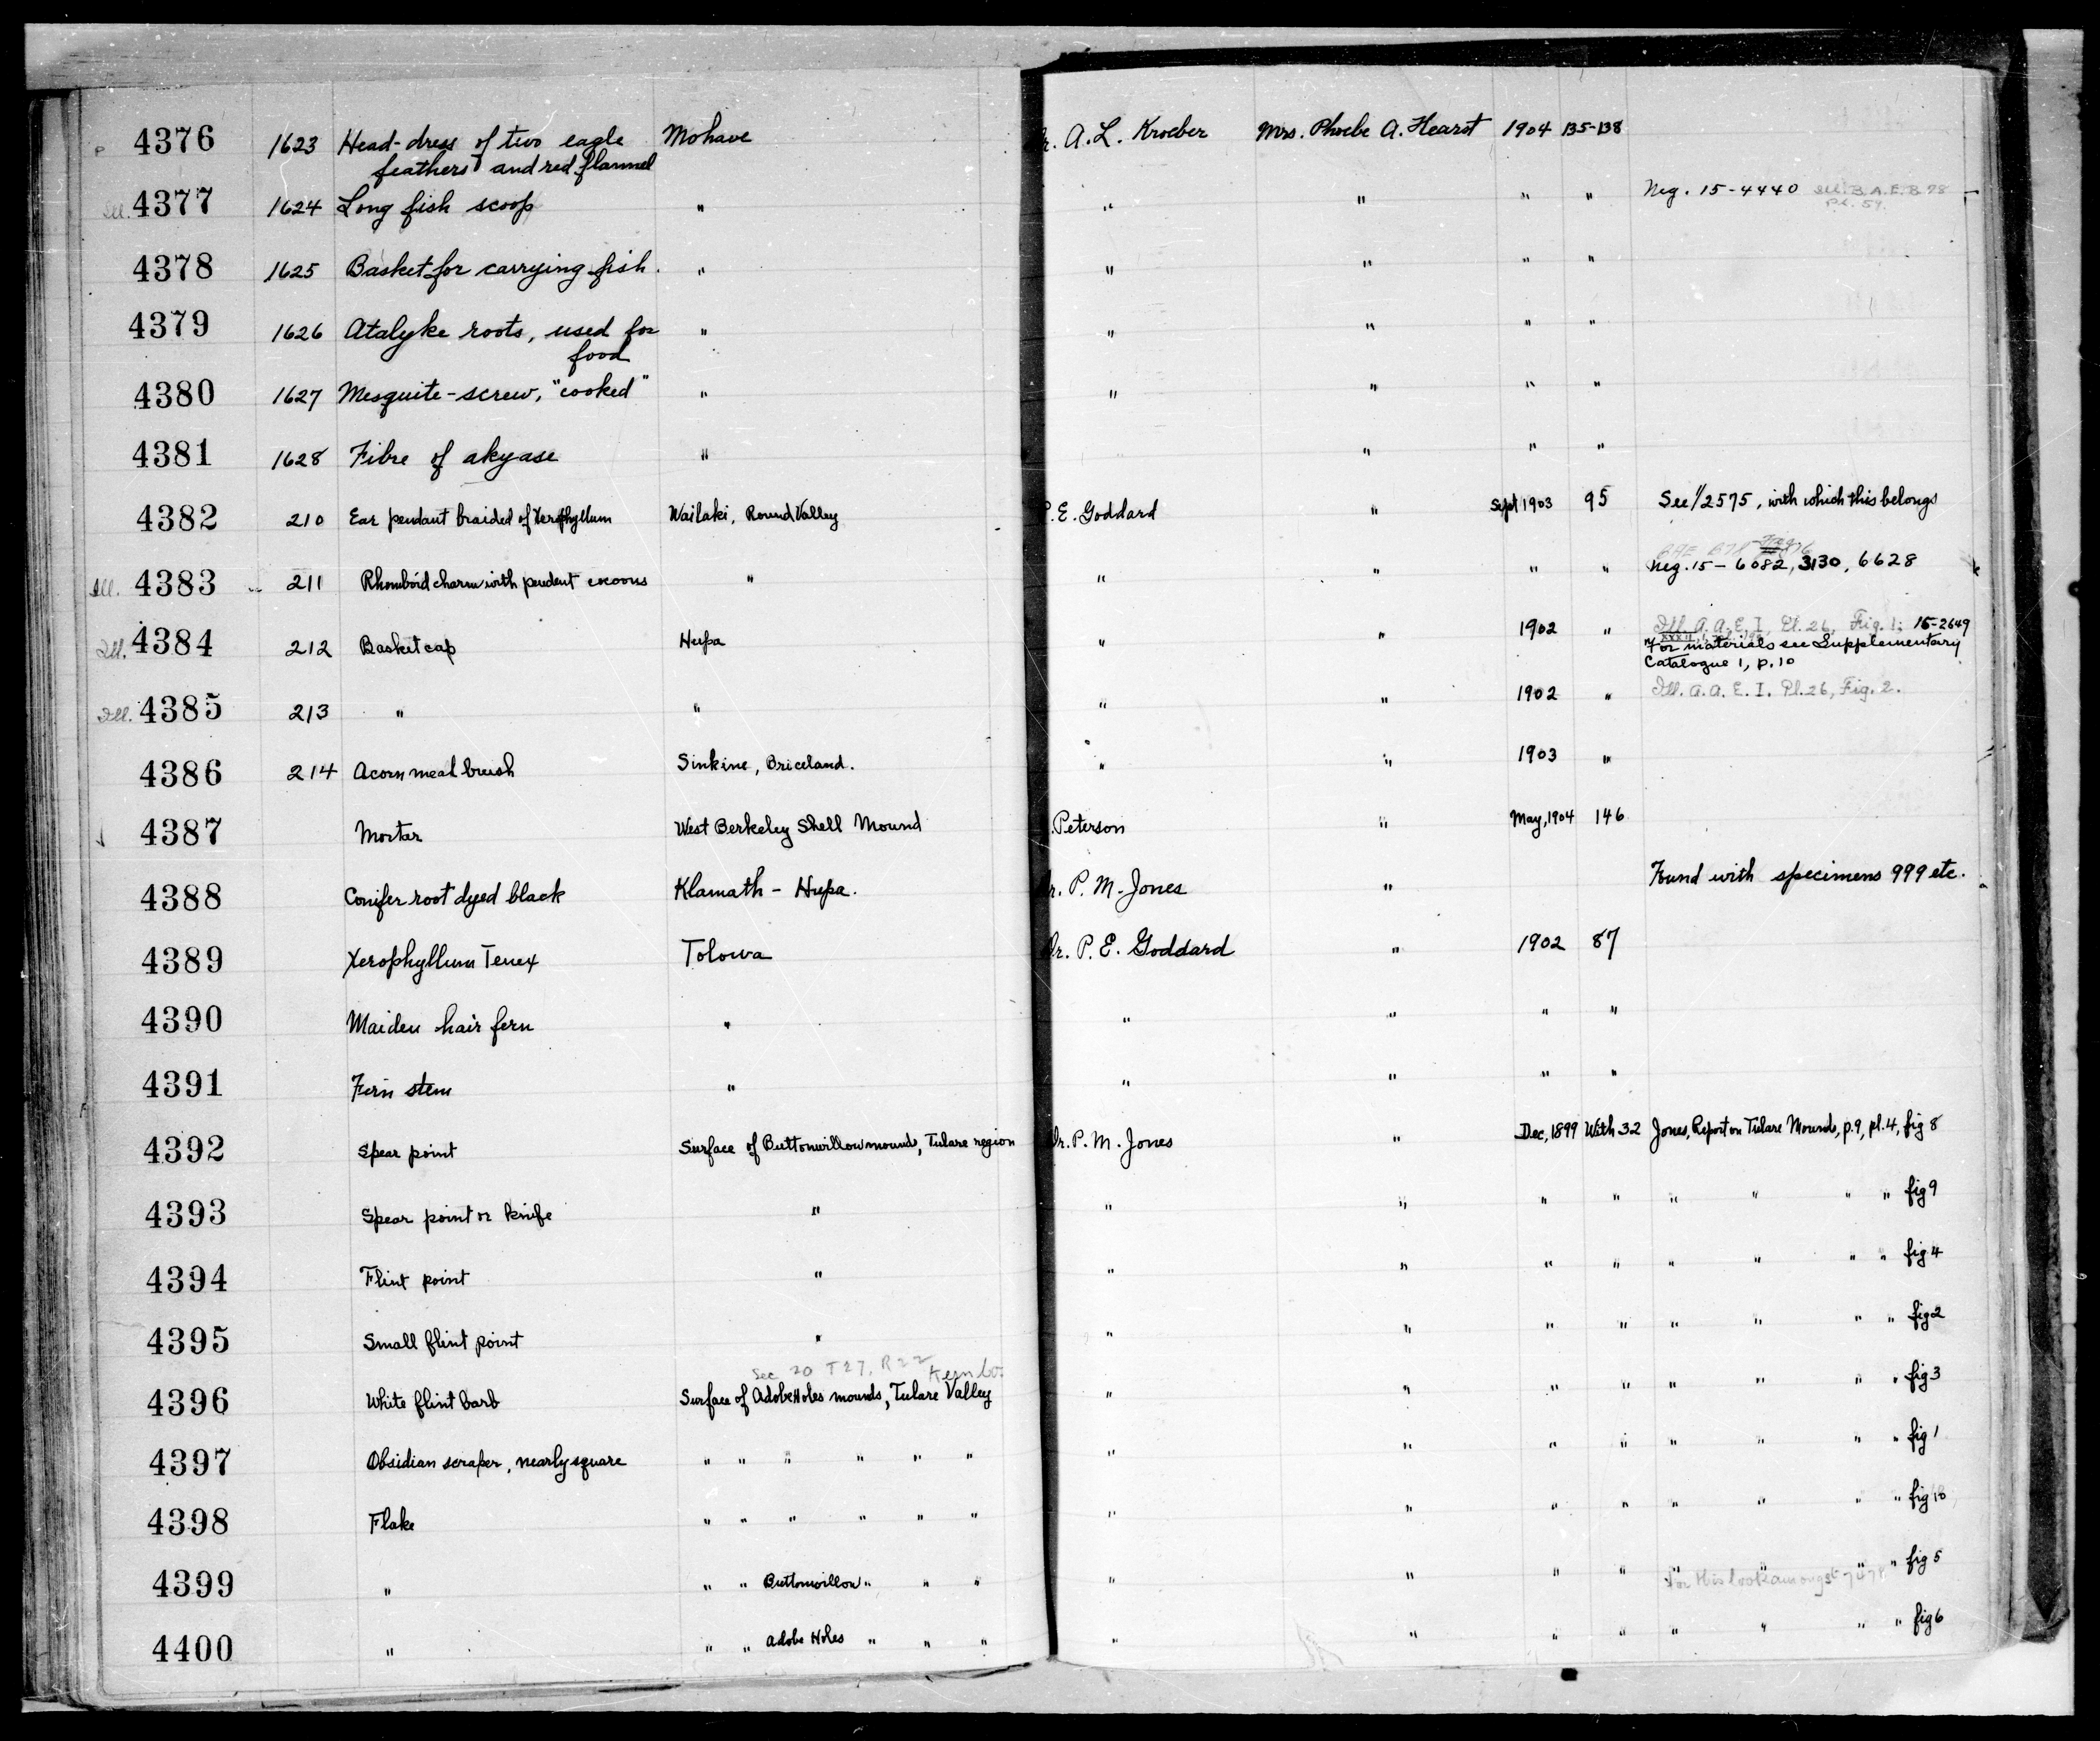 4376 1623 Head-dress of two eagle Mohave r. A. L. Kroeber Mrs. Phoebe A. Hearst 1904 135-138
feathers and red flannel
Ill. 4377 1624 Long fish scoop " " " " " Neg. 15-4440 Ill. B.A.E. B 78
Pl. 59.
4378 1625 Basket for carrying fish. " " " " "
4379 1626 Atalyke roots, used for " " " " "
food
4380 1627 Mesquite-screw, "cooked" " " " " "
4381 1628 Fibre of akyase " " " "
4382 210 Ear pendant braided of Xerophyllum Wailaki, Round Valley P. E. Goddard " Sept 1903 95 See 1/2575, with which this belongs
Ill. 4383 211 Rhomboid charm with pendent cocoons " " " " " Neg. 15-6082, 3130, 6628
Ill. 4384 212 Basket cap Hupa " " 1902 " Ill. A.A.E. I, Pl. 26, Fig. 1; 15-2649
For materials see Supplementary
Catalogue 1, p. 10
Ill. 4385 213 " " " " 1902 " Ill. A.A.E. I. Pl. 26, Fig. 2.
4386 214 Acorn meal brush Sinkine, Briceland. " " 1903 "
4387 Mortar West Berkeley Shell Mound .Peterson " May, 1904 146
4388 Conifer root dyed black Klamath - Hupa. r. P. M. Jones " Found with specimens 999 etc.
4389 Xerophyllum Tenex Tolowa Dr. P. E. Goddard " 1902 87
4390 Maiden hair fern " " " " "
4391 Fern stem " " " " "
4392 Spear point Surface of Buttonwillow mounds, Tulare region Dr. P. M. Jones " Dec, 1899 With 32 Jones, Report on Tulare Mounds, p. 9, pl. 4, fig 8
4393 Spear point or knife " " " " " " " " " fig 9
4394 Flint point " " " " " " " " " fig 4
4395 Small flint point " " " " " " " " " fig 2
Sec 20 T27, R22 Kern Co.
4396 White flint barb Surface of Adobe Holes mounds, Tulare Valley " " " " " " " " fig 3
4397 Obsidian scraper, nearly square " " " " " " " " " " " " " " fig 1
4398 Flake " " " " " " " " " " " " " " fig 10
4399 " " " Buttonwillow " " " " " " " " " " " fig 5
For this look amongst
4400 " " " Adobe Holes " " " " " " " " " " " fig 6